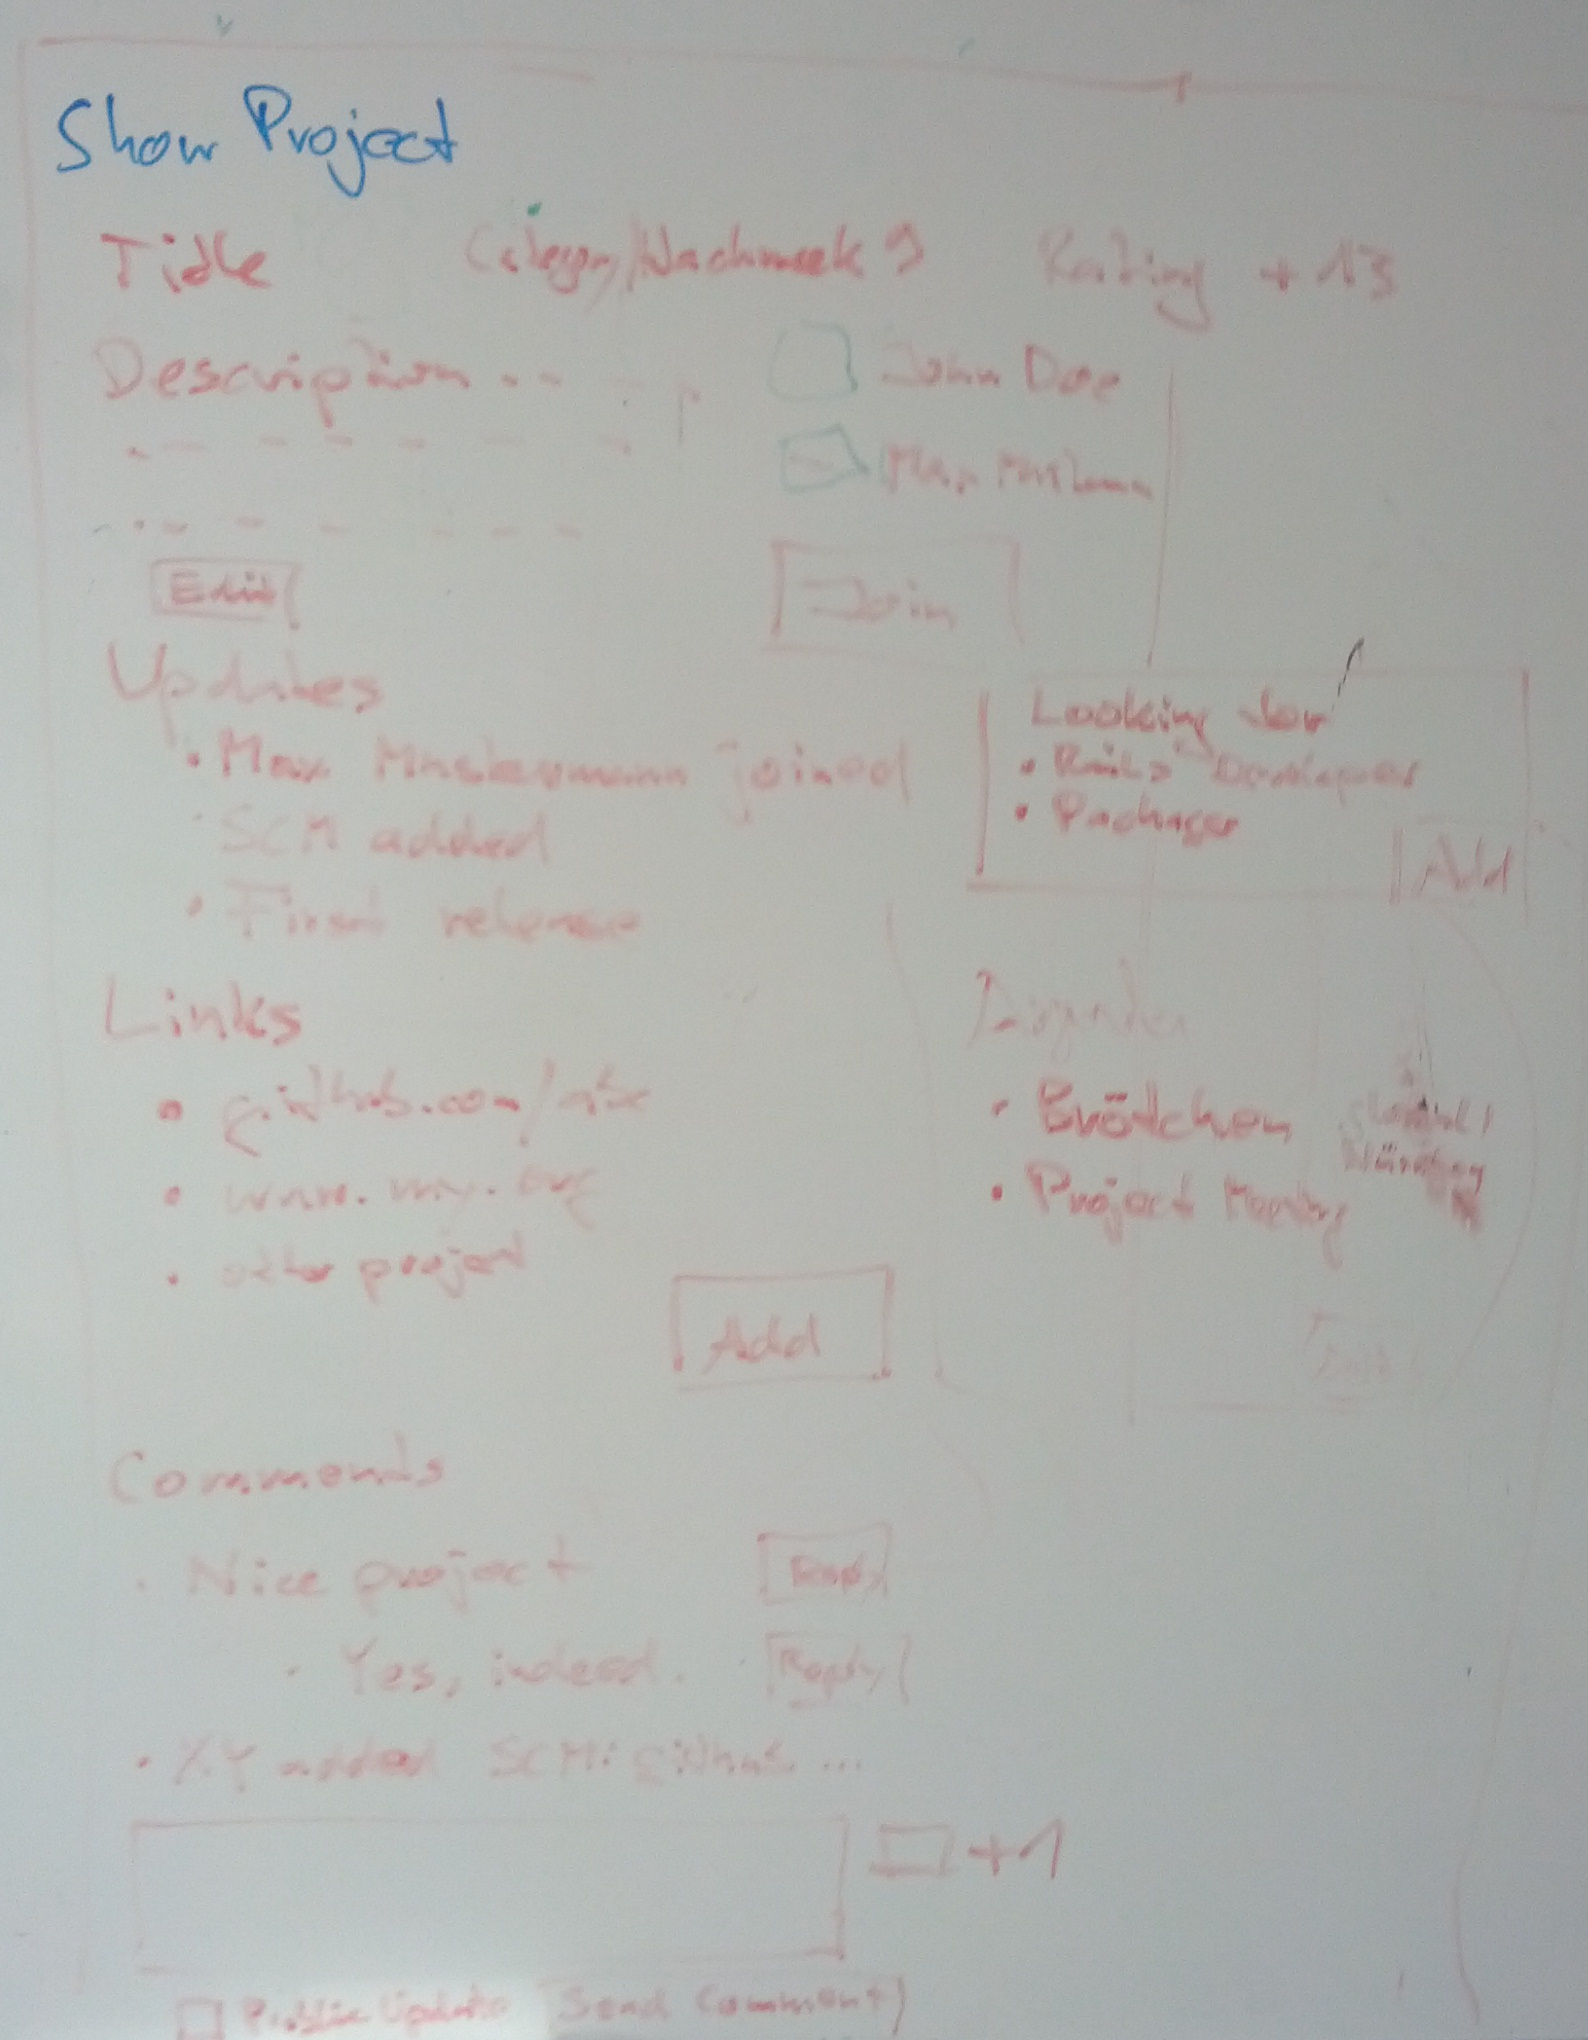 Show Project
Title Category/Hackweek 9 Rating +13
Description
John Doe
Max
Edit
Join
Updates
• Max Mustermann joined
• SCM added
• First release
Looking for
• Rails Developer
• Packager
Add
Links
• github.com/
• www.my.org
• other project
Add
• Brötchen
• Project Meeting
Nürnberg
Comments
• Nice project Reply
• Yes, indeed. Reply
• XY added SCM: github ...
+1
Public Update Send Comment